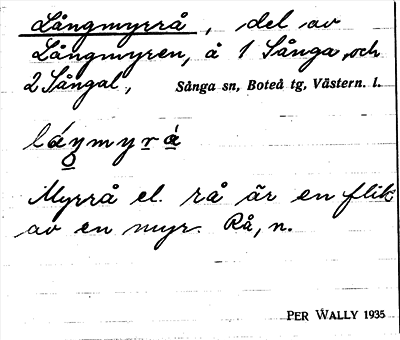 Långmyrrå, del av
Långmyren, å 1 Sånga, och
2 Sångal, Sånga sn, Boteå tg, Västern. l.
Myrrå el. rå är en flik
av en myr. Rå, n.
PER WALLY 1935